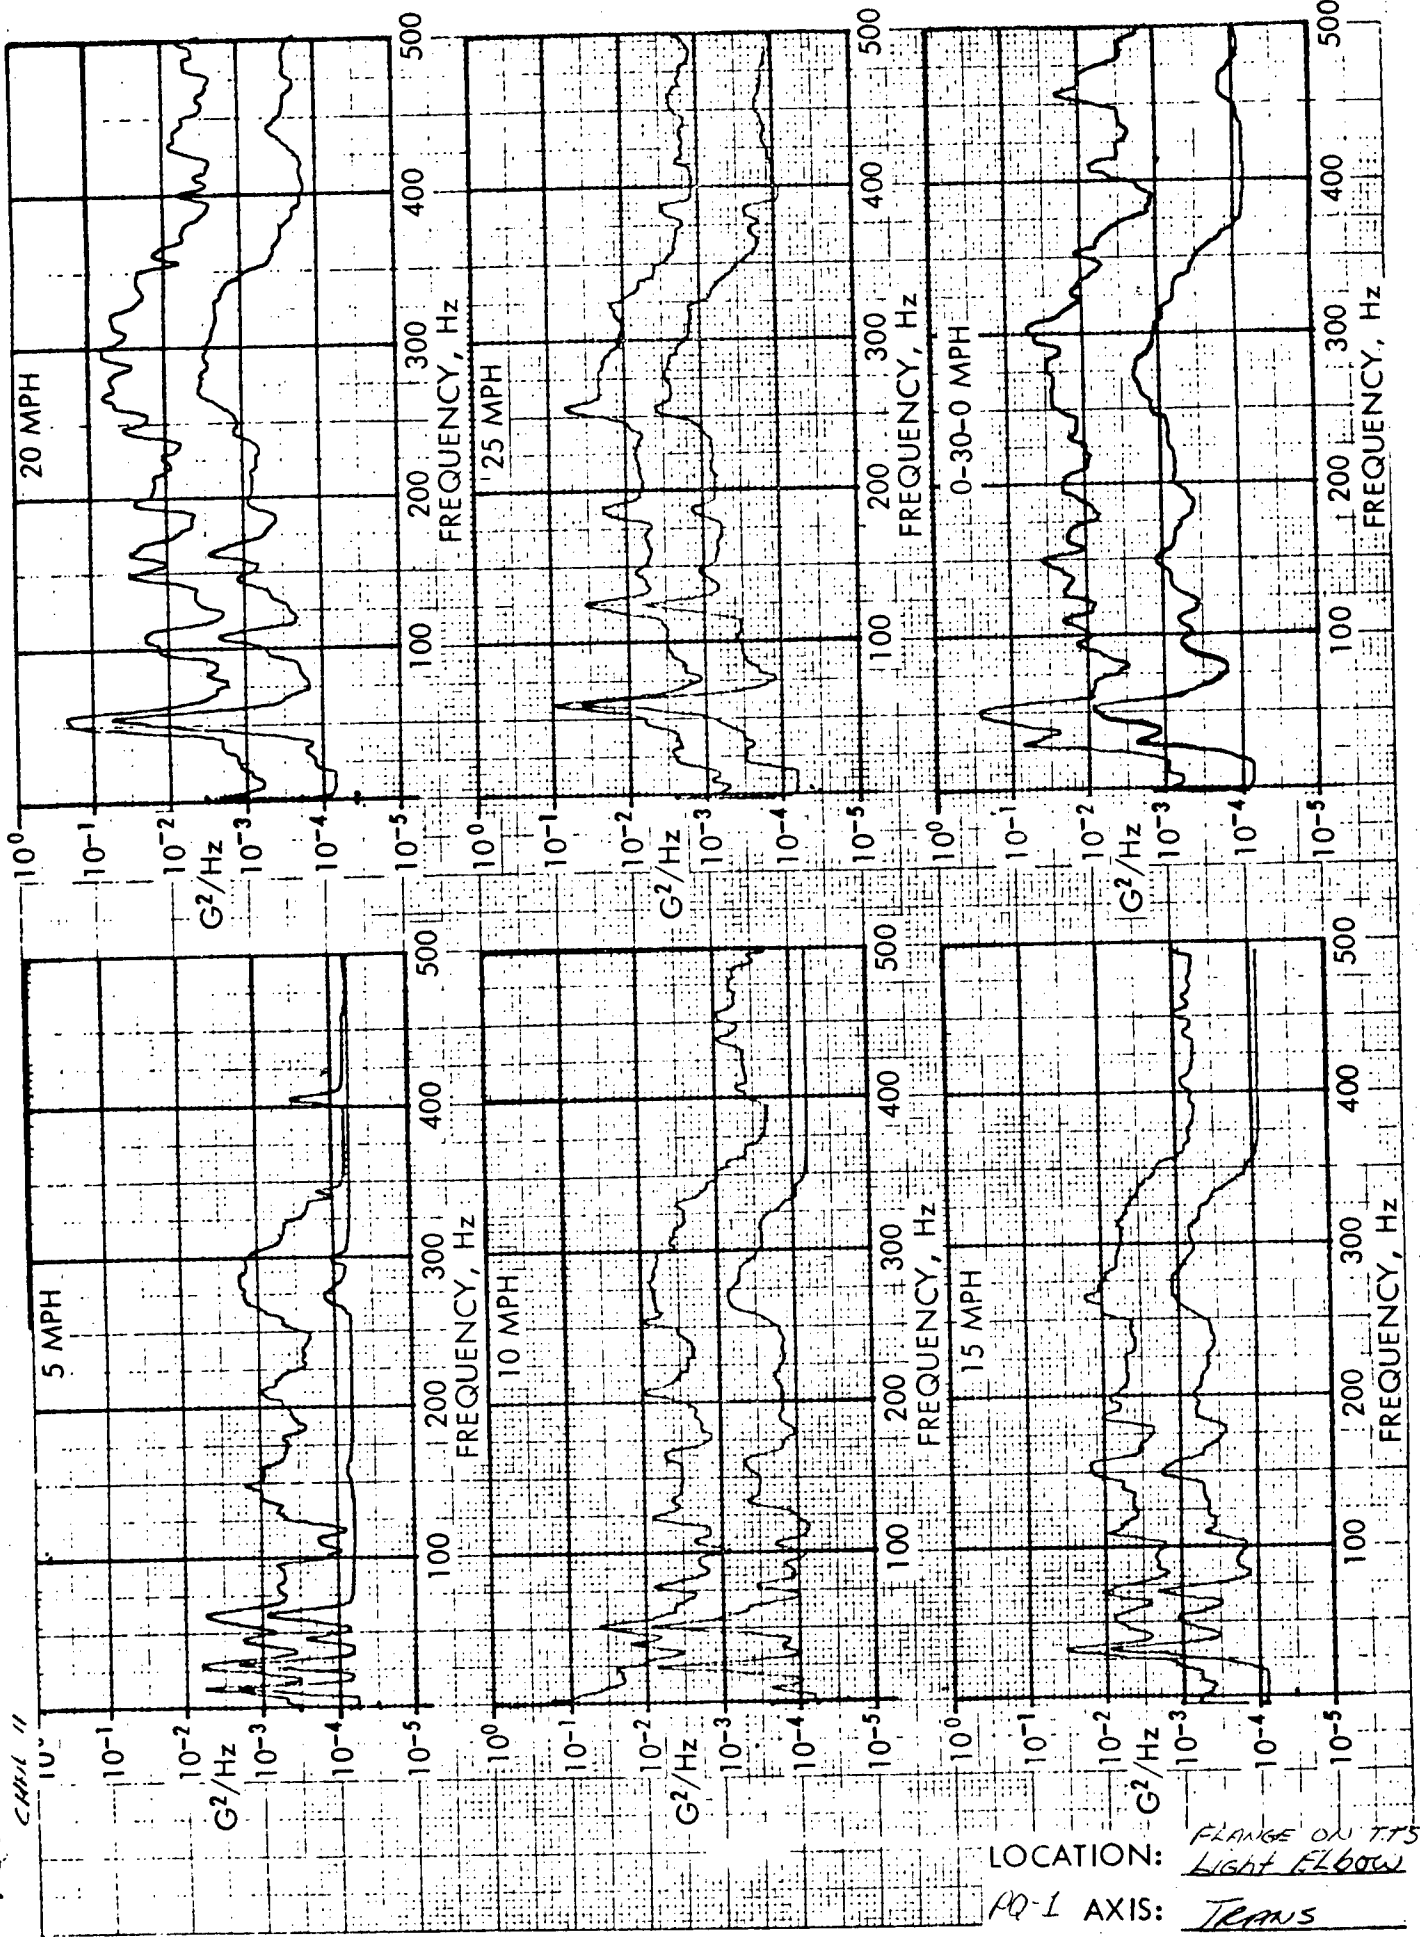 CHNL 11
5 MPH
G²/Hz
10⁻¹
10⁻²
10⁻³
10⁻⁴
10⁻⁵
100
200
300
400
500
FREQUENCY, Hz
20 MPH
G²/Hz
10⁰
10⁻¹
10⁻²
10⁻³
10⁻⁴
10⁻⁵
100
200
300
400
500
FREQUENCY, Hz
10 MPH
G²/Hz
10⁰
10⁻¹
10⁻²
10⁻³
10⁻⁴
10⁻⁵
100
200
300
400
500
FREQUENCY, Hz
25 MPH
G²/Hz
10⁰
10⁻¹
10⁻²
10⁻³
10⁻⁴
10⁻⁵
100
200
300
400
500
FREQUENCY, Hz
15 MPH
G²/Hz
10⁰
10⁻¹
10⁻²
10⁻³
10⁻⁴
10⁻⁵
100
200
300
400
500
FREQUENCY, Hz
0-30-0 MPH
G²/Hz
10⁰
10⁻¹
10⁻²
10⁻³
10⁻⁴
10⁻⁵
100
200
300
400
500
FREQUENCY, Hz
LOCATION: FLANGE ON TTS
Light ELbow
PQ-1 AXIS: TRANS